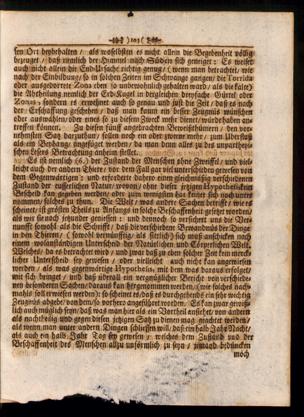 )103(
sen Ort beybehalten / als woselbsten es nicht allein die Begebenheit völlig
bezeuget / daß nemlich der Himmel nach Süden sich geneiget : Es weiset
auch nicht allein die End-Ursache richtig genug / ( wenn man betrachtet / wie
nach der Einbildung / so in solchen Zeiten im Schwange gangen / die Torridæ
oder ausgedorrete Zona eben so unbewohnlich gehalten ward / als die kalte)
die Abtheilung nemlich der Erd-Kugel in dergleichen dreyfache Gürtel oder
Zonas, sondern es erweisset auch so genau und just die Zeit / daß es nach
der Erschaffung geschehen / daß man kaum ein besser Zeugniß wünschen
oder auswählen / oder eines so zu diesem Zweck mehr dienet / würde haben an-
treffen können. Zu diesen fünff angebrachten Beweißthümern / den vor-
nehmsten Satz darzuthun / sollen noch ein oder zwey mehr / zum Überfluß
als ein Anhang angefüget werden / da man denn alles zu des unpartheyi-
schen Lesers Betrachtung anheim stellet.
Es ist nemlich (6.) der Zustand der Menschen ohne Zweiffel / und viel-
leicht auch der andern Thiere / vor dem Fall gar viel unterschieden gewesen von
dem Gegenwärtigen : und erfordert dahero einen gleichmäßig verschiedenen
Zustand der äusserlichen Natur / wovon / ohne diesen jetzigen Hypothesi kein
Bescheid kan gegeben werden / oder zum wenigsten hat keiner sich noch unter-
nommen / solches zu thun. Die Welt / was andere Sachen betrifft / wie es
scheinet / ist grösten Theils zu Anfangs in solche Beschaffenheit gesetzt worden /
als wir sie noch jetzunder geniessen : und dennoch so versichert uns die Ver-
nunfft sowohl als die Schrifft / daß die verschiedene Bewandniß der Dinge
in den Thieren / ( sowohl vernünfftig / als sinnlich ) sich muß anschicken nach
einem wolanständigen Unterscheid der Natürlichen und Cörperlichen Welt.
Welches / da es betrachtet wird / und zwar daß zu eben solcher Zeit ein merck-
licher Unterscheid sey gewesen / oder vielleicht auch nicht kan angewiesen
werden / als nach gegenwärtige Hypothesis, mit dem was daraus erfolget /
wie sich bezeuget / und daß überall ein wegnmässiger Bericht von verschiede-
nen besonderen Sachen / daraus kan hergenommen werden / (wie solches nach-
mahls soll erwiesen werden) : so scheinet es / daß es durchgehends ein sehr wichtig
Zeugniß abgebe / von dem / so vorhero angeführet worden. Es kan zwar gewiß-
lich auch möglich seyn / daß was man hier als ein Vortheil ansiehet / von andern
als nachtheilig und gegen diesen jetzigen Satz zu dienen mag geachtet werden /
als wenn man unter andern Dingen schliessen will / daß ein halb Jahr Nacht /
als auch ein halb Jahr Tag sey gewesen / welches dem Zustand und der
Beschaffenheit des Menschen allzu unförmlich zu seyn / jemand bedüncken
möch